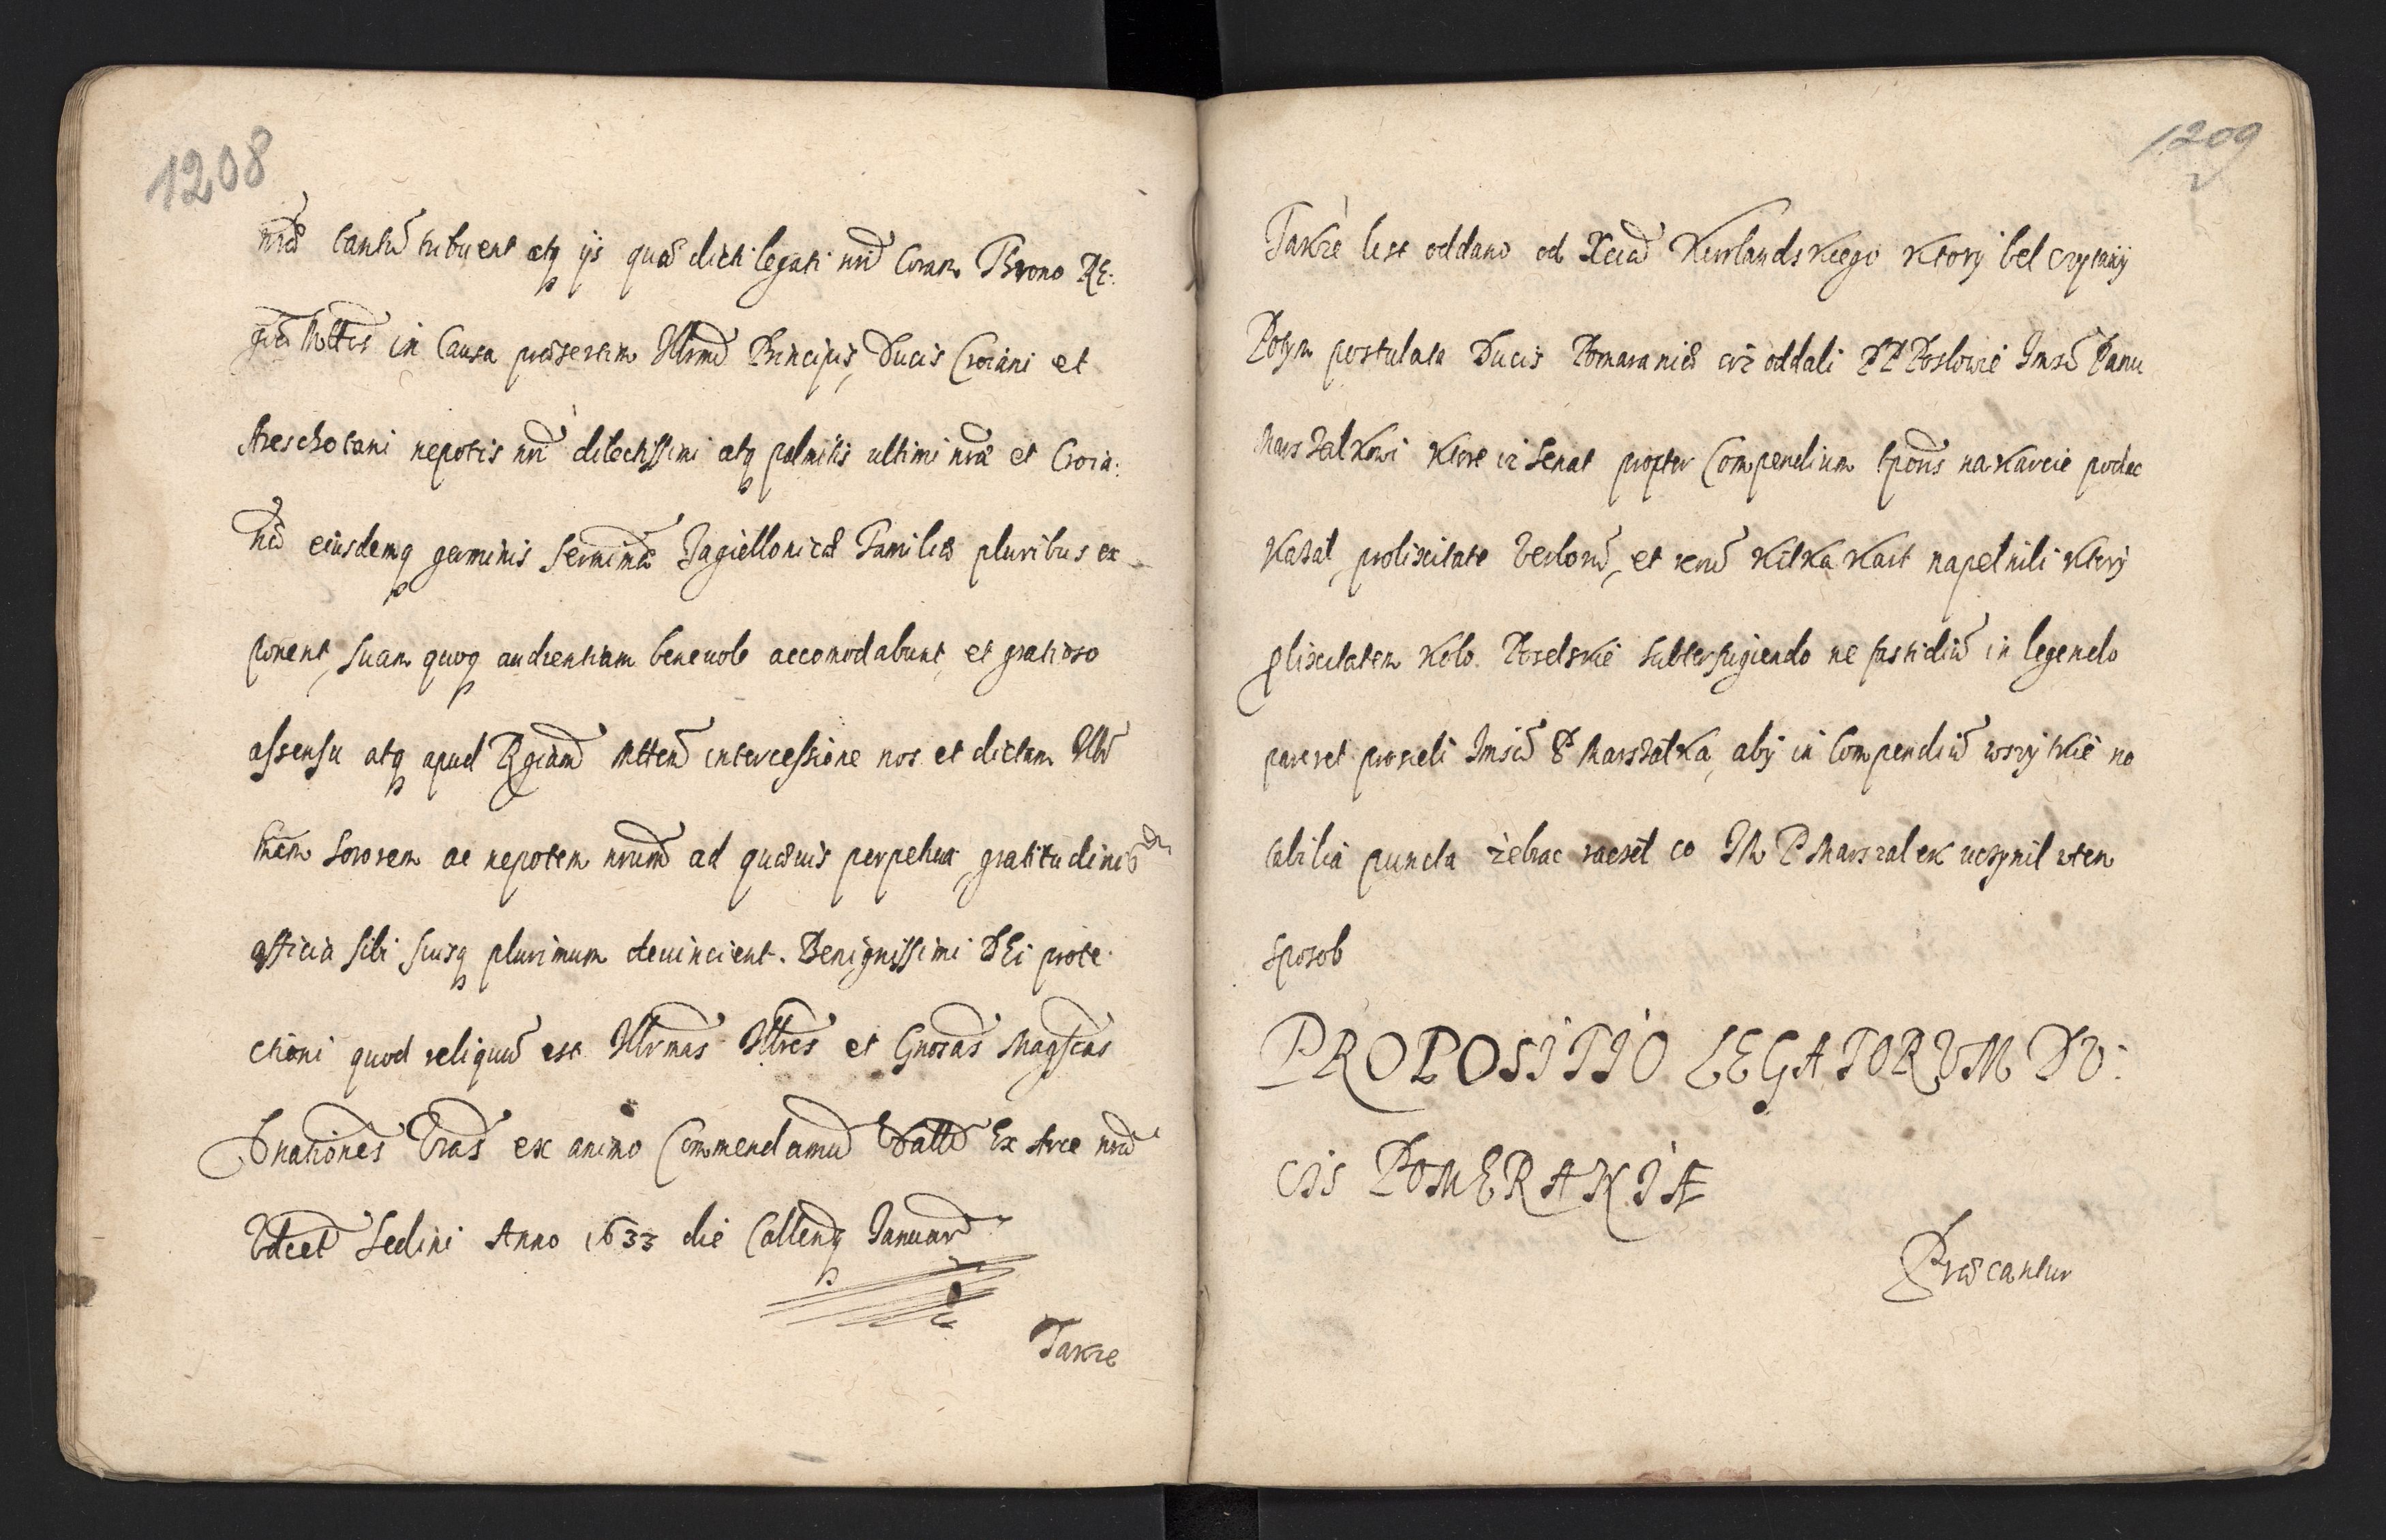 1208
nrã tantũ tribuent atq ijs quæ dicti legati nrĩ Coram Throno RE:
giæ Mttis in Causa præsertim Illrmi Principis, Ducis Croiani et
Areschotani nepotis nrĩ dilectissimi atq palmitis ultimi nræ et Croia:
næ eiusdemq germinis Jagiellonicæ Familiæ pluribus ex
ponent, suam quoq audientiam beneuole accomodabunt, et gratioso
assensu atq apud Rgiam Mttem intercessione nos et dictam Illu
mam Sororem ac nepotem nrum ad quæuis perpetua gratitudinis
officia sibi suisq plurimum deuincient. Benignissimi DEi prote
ctioni quod reliquũ est Illrmas Illtres et Gnosas Magfcas
Dnationes Vras ex animo Commendamus Ex Arce nrã
Sedini Anno 1633 die Callend Januar
Takze
1209
Takze list oddano od Xcia Kurlandskiego ktory bel czytany
Potym postulata Ducis Pomaraniæ ciz oddali PP Poslowie Jmsci Panu
Marszalkowi ktore iz Senat propter Compendium tporis na karcie podac
kazal, prolixitate verborũ, et rerũ kilka kart napelnili ktory
plixitatem kolo Poselskie subterfugiendo ne fastidiũ in legendo
pareret prosieli Jmsci P Marszalka, aby in Compendiũ wszytkie no
tabilia puncta zebrac raczel co JM P Marszalek uczynil wten
sposob
PROPOSITIO LEGATORUM DU:
CIS POMERANIÆ
Præcantur